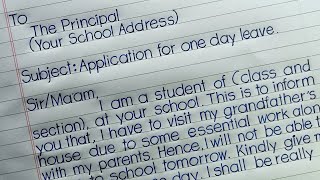 To
The Principal
(Your School Address)
Subject: Application for one day leave.
Sir/Maam,
I am a student of (class and
section), at your school. This is to inform
you that, I have to visit my grandfather's
house due to some essential work along
with my parents. Hence, I will not be able to
to school tomorrow. Kindly give m
day. I shall be really